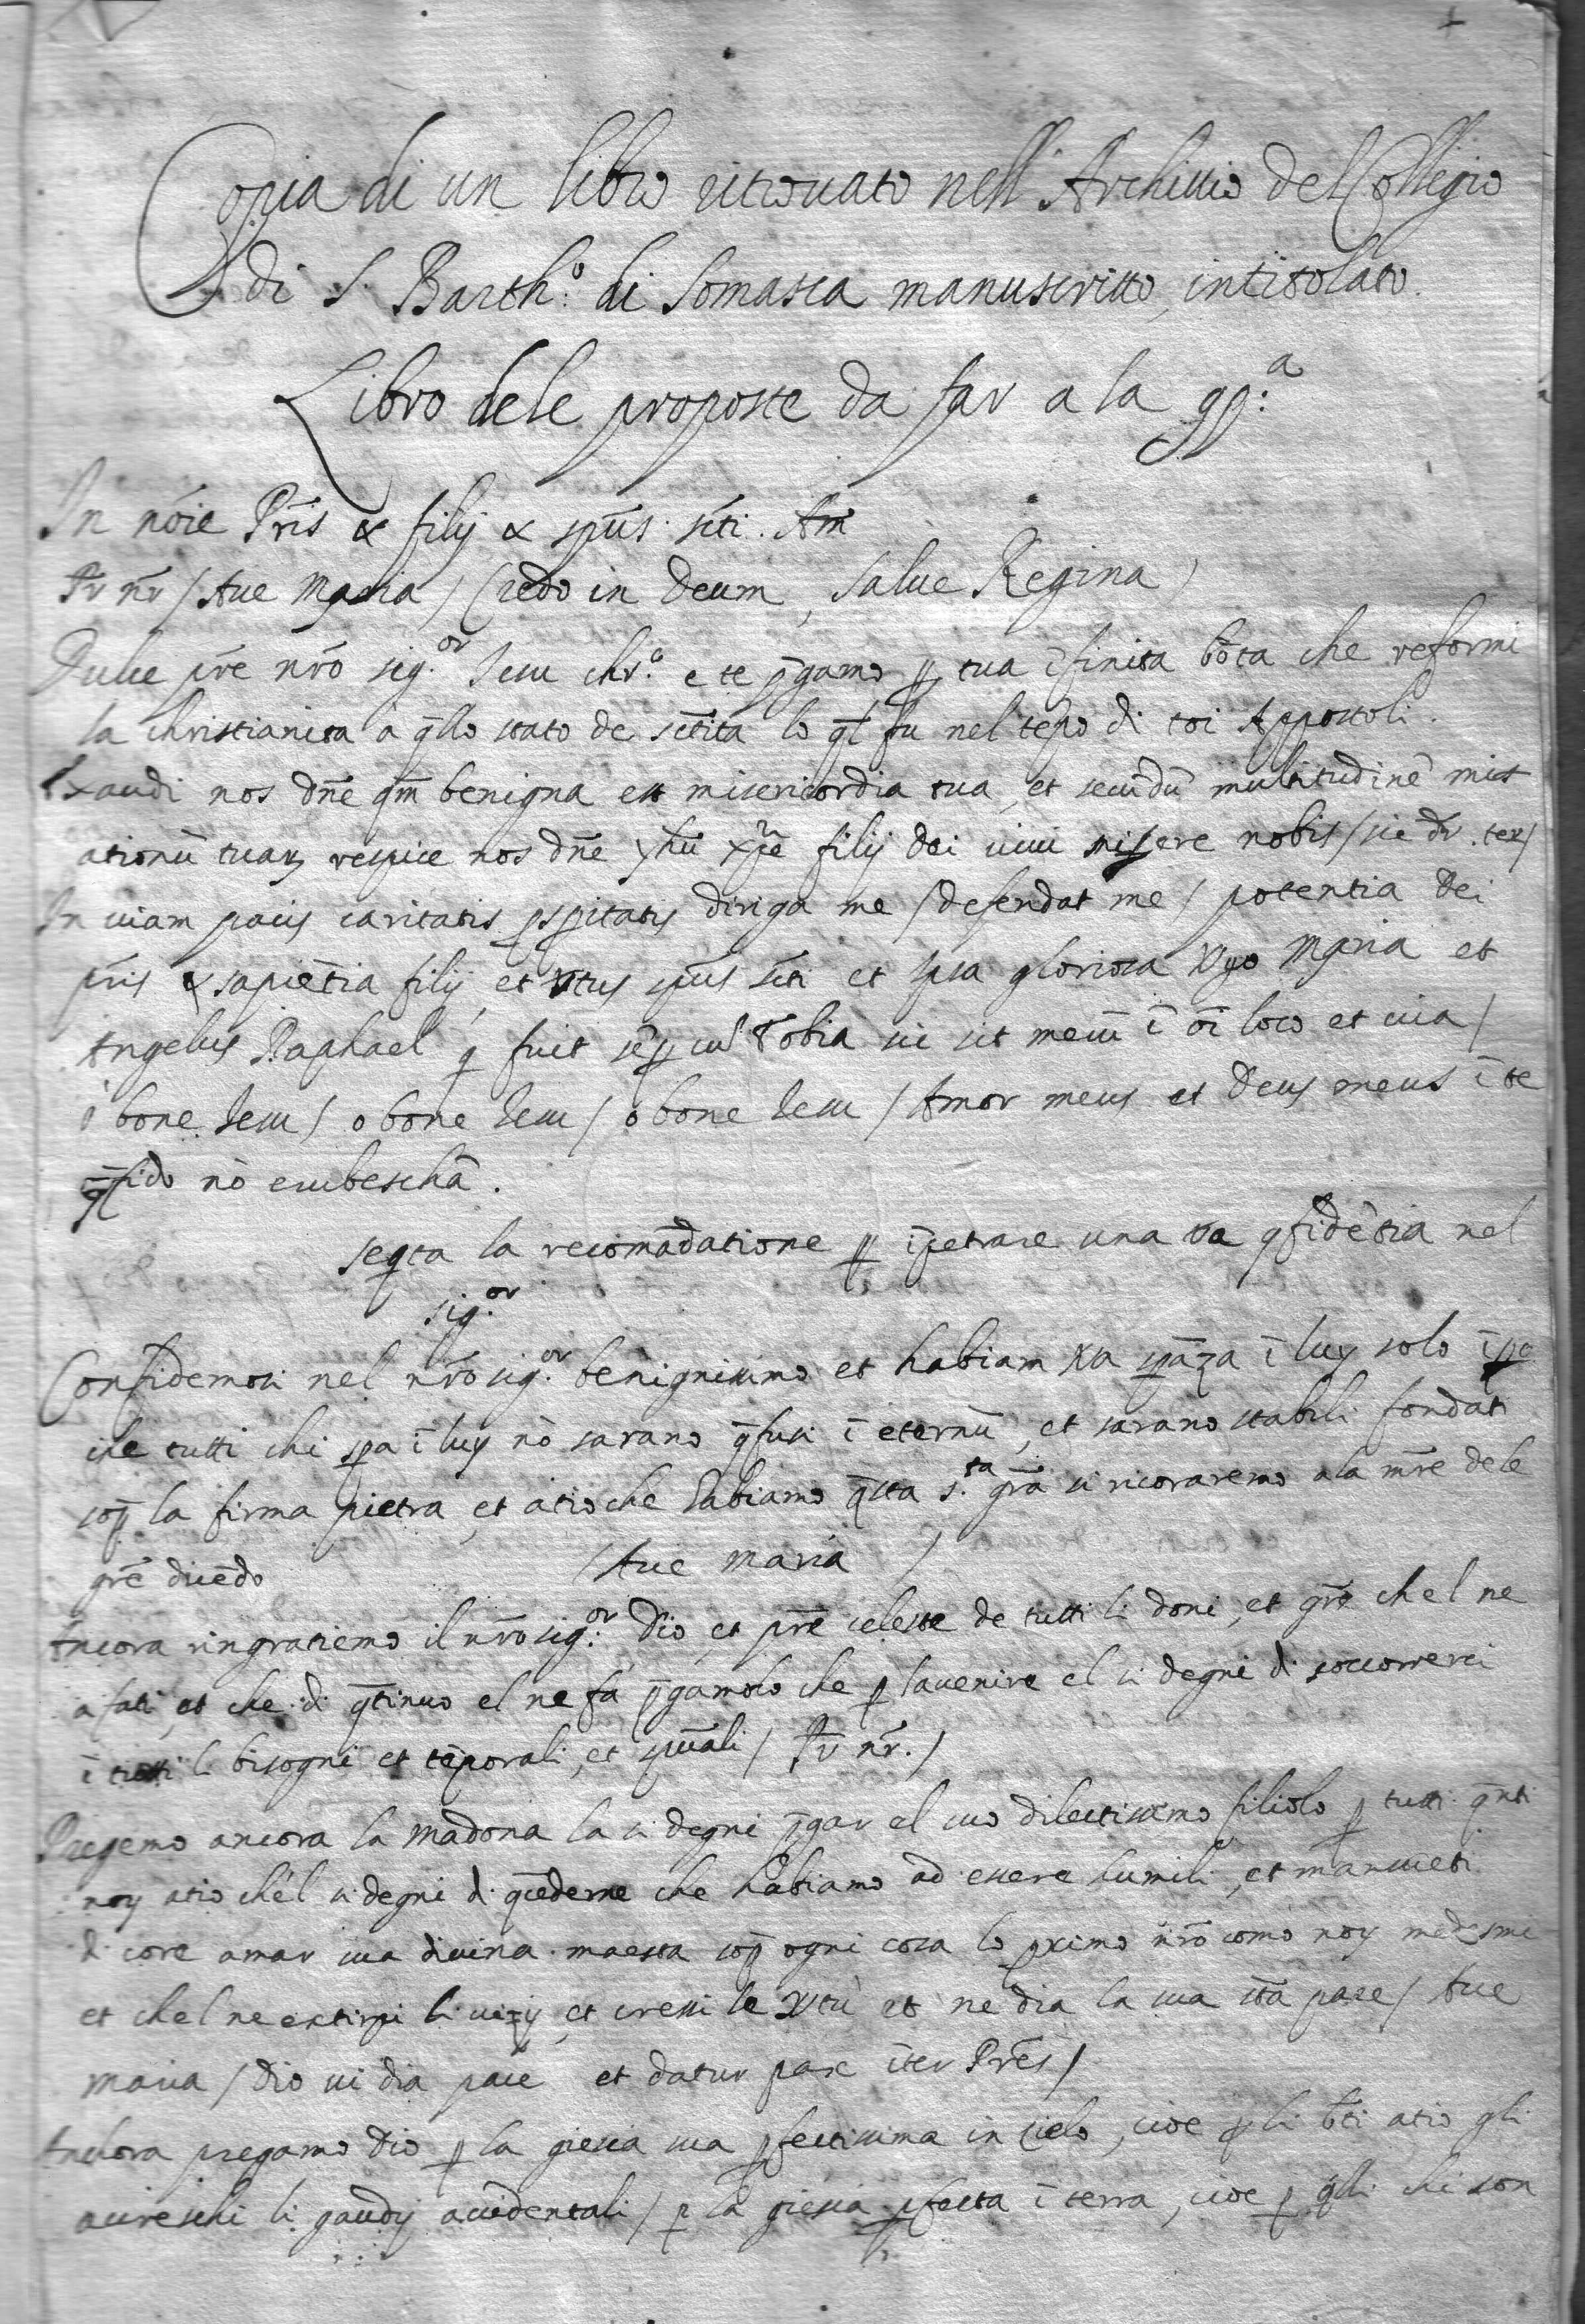 Copia di un libro ritrouato nell'Archiuio del Collegio
di S. Barth.º di Somasca manuscritto, intitolato.
Libro dele proposte da far a la 9g.ª
In nōie Pr̄is & filij & spūs sc̄ti. Am̄
Pr̄ nr̄ / Aue Maria / Credo in Deum, Salue Regina /
Dulce pr̄e nr̄o sig.or Iesu chr.º e te p̄gamo ꝑ tua ī finita bōta che reformi
la christianita a q̄llo stato de sc̄tita lo q̄l fu nel tēpo di toi Appostoli.
Exaudi nos dn̄e qm̄ benigna est misericordia tua, et secūdū multitudinē mist
ationū tuaꝝ respice nos dn̄e yhū xp̄e filij dei uiui misere nobis / sic dr̄. ter /
In uiam pacis caritatis ꝓspitatis diriga me / defendat me / potentia Dei
pr̄is & sapiētia filij, et vtus spūs sc̄ti et ipsa gloriosa Vgo Maria et
Angelus Raphael q fuit sēꝑ cū Tobia sic sit mecū ī oī loco et uia /
ò bone Iesu / o bone Iesu / o bone Iesu / Amor meus et Deus meus ī te
q̄fido nō erubeschā.
seq̄ta la recomādatione ꝑ īpetrare una va 9fidētia nel
sig.or
Confidemosi nel nr̄o sig.or benignissimo et habiam va spāza ī luy solo īpo
che tutti chi spa ī luy nō sarano q̄fusi ī eternū, et sarano stabili fondati
sop̄ la firma pietra, et atio che habiamo q̄sta s.ta gr̄a si ricoraremo ala mr̄e dele
gr̄e dicēdo (Aue maria)
Ancora ringratiemo il nr̄o sig.or Dio, et pr̄e celeste de tutti li doni, et gr̄e chel ne
a fati, et che di q̄tinuo el ne fa, p̄gamolo che ꝑ lauenire el si degni di soccorrerci
ī tutti li bisogni et tēporali, et spūali / Pr̄ nr̄. /
Pregemo ancora la Madona la si degni p̄gar el suo dilectissimo filiolo ꝑ tutti q̄nti
noy atio chèl si degni di q̄cederne che habiamo ad essere humili, et mansueti
di core amar sua diuina maesta sop̄ ogni cosa lo ꝓximo nr̄o como noy medesmi
et chel ne extirpi li uizij, et cressi le vtu et ne dia la sua sc̄ta pace / Aue
maria / Dio ui dia pace et datur pax īter Pr̄es /
Anchora pregamo dio ꝑ la giesia sua ꝑfectissima in cielo, cioe ꝑ li bt̄i atio gli
acireschi li gaudij accidentali / ꝑ la giesia ꝑfecta ī terra, cioe ꝑ q̄lli chi son